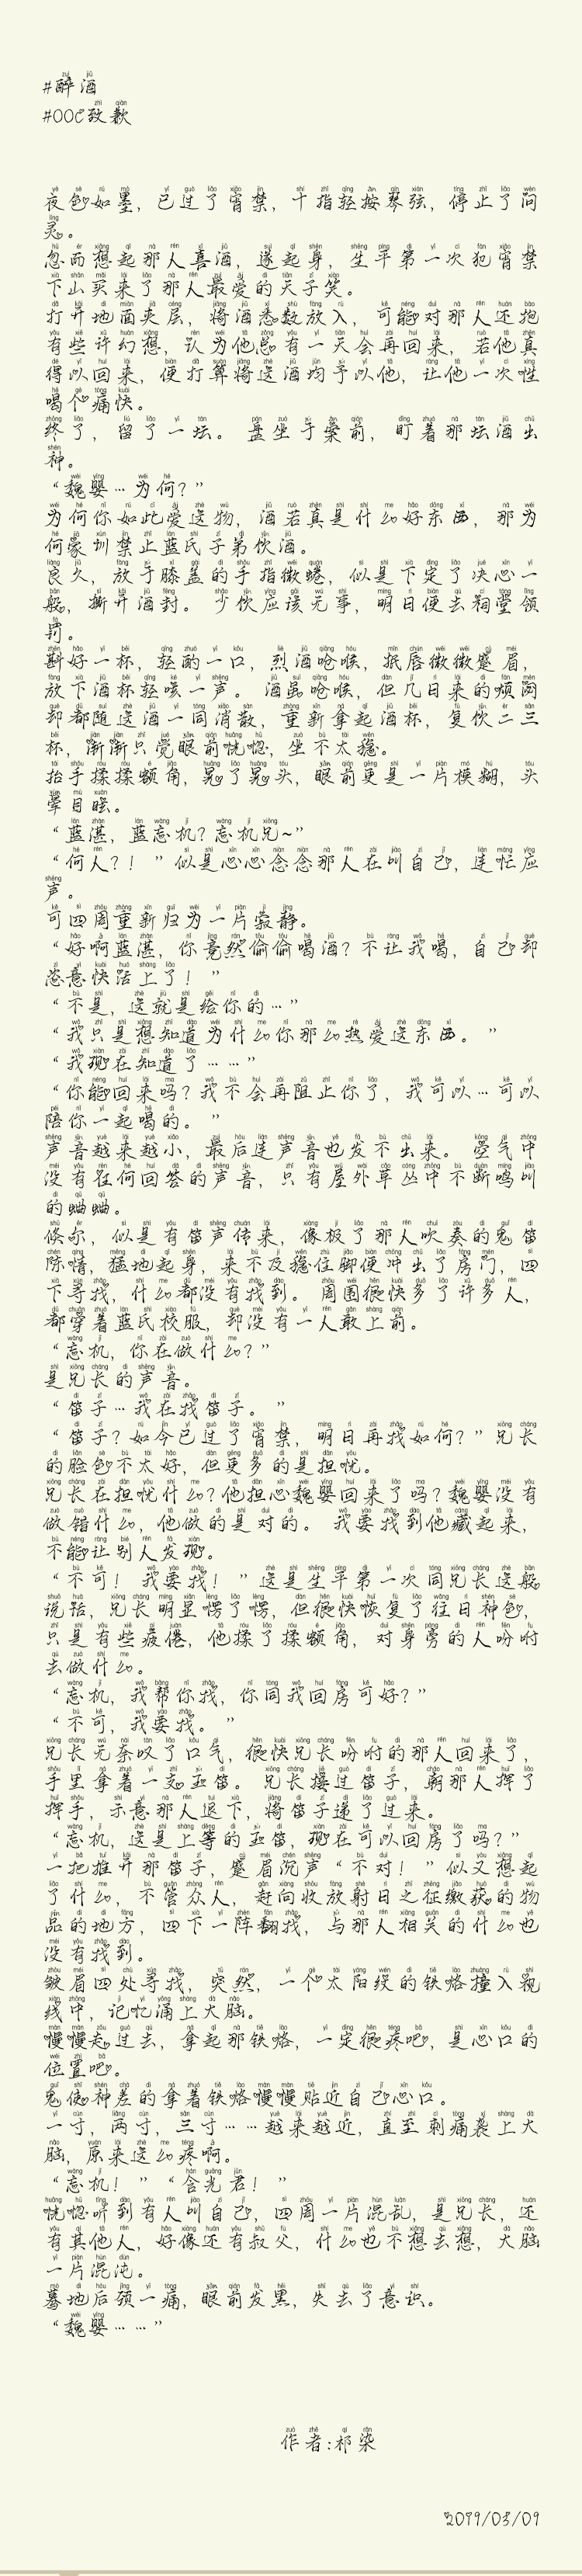 #醉酒
#OOC致歉
夜色如墨，已过了宵禁，十指轻按琴弦，停止了问
灵。
忽而想起那人喜酒，遂起身，生平第一次犯宵禁
下山买来了那人最爱的天子笑。
打开地面夹层，将酒悉数放入，可能对那人还抱
有些许幻想，认为他总有一天会再回来，若他真
得以回来，便打算将这酒均予以他，让他一次性
喝个痛快。
终了，留了一坛。盘坐于案前，盯着那坛酒出
神。
“魏婴…为何？”
为何你如此爱这物，酒若真是什么好东西，那为
何家训禁止蓝氏子弟饮酒。
良久，放于膝盖的手指微蜷，似是下定了决心一
般，撕开酒封。少饮应该无事，明日便去祠堂领
罚。
斟好一杯，轻酌一口，烈酒呛喉，抿唇微微蹙眉，
放下酒杯轻咳一声。酒虽呛喉，但几日来的烦闷
却都随这酒一同消散，重新拿起酒杯，复饮二三
杯，渐渐只觉眼前恍惚，坐不太稳。
抬手揉揉额角，晃了晃头，眼前更是一片模糊，头
晕目眩。
“蓝湛，蓝忘机？忘机兄~”
“何人？！”似是心心念念那人在叫自己，连忙应
声。
可四周重新归为一片寂静。
“好啊蓝湛，你竟然偷偷喝酒？不让我喝，自己却
恣意快活上了！”
“不是，这就是给你的…”
“我只是想知道为什么你那么热爱这东西。”
“我现在知道了……”
“你能回来吗？我不会再阻止你了，我可以…可以
陪你一起喝的。”
声音越来越小，最后连声音也发不出来。空气中
没有任何回答的声音，只有屋外草丛中不断鸣叫
的蛐蛐。
倏尔，似是有笛声传来，像极了那人吹奏的鬼笛
陈情，猛地起身，来不及稳住脚便冲出了房门，四
下寻找，什么都没有找到。周围很快多了许多人，
都穿着蓝氏校服，却没有一人敢上前。
“忘机，你在做什么？”
是兄长的声音。
“笛子…我在找笛子。”
“笛子？如今已过了宵禁，明日再找如何？”兄长
的脸色不太好，但更多的是担忧。
兄长在担忧什么？他担心魏婴回来了吗？魏婴没有
做错什么，他做的是对的。我要找到他藏起来，
不能让别人发现。
“不可！我要找！”这是生平第一次同兄长这般
说话，兄长明显愣了愣，但很快恢复了往日神色，
只是有些疲倦，他揉了揉额角，对身旁的人吩咐
去做什么。
“忘机，我帮你找，你同我回房可好？”
“不可，我要找。”
兄长无奈叹了口气，很快兄长吩咐的那人回来了，
手里拿着一支玉笛。兄长接过笛子，朝那人挥了
挥手，示意那人退下，将笛子递了过来。
“忘机，这是上等的玉笛，现在可以回房了吗？”
一把推开那笛子，蹙眉沉声“不对！”似又想起
了什么，不管众人，赶向收放射日之征缴获的物
品的地方，四下一阵翻找，与那人相关的什么也
没有找到。
皱眉四处寻找，突然，一个太阳纹的铁烙撞入视
线中，记忆涌上大脑。
慢慢走过去，拿起那铁烙，一定很疼吧，是心口的
位置吧。
鬼使神差的拿着铁烙慢慢贴近自己心口。
一寸，两寸，三寸……越来越近，直至刺痛袭上大
脑，原来这么疼啊。
“忘机！”“含光君！”
恍惚听到有人叫自己，四周一片混乱，是兄长，还
有其他人，好像还有叔父，什么也不想去想，大脑
一片混沌。
蓦地后颈一痛，眼前发黑，失去了意识。
“魏婴……”
作者:祁染
2019/03/09